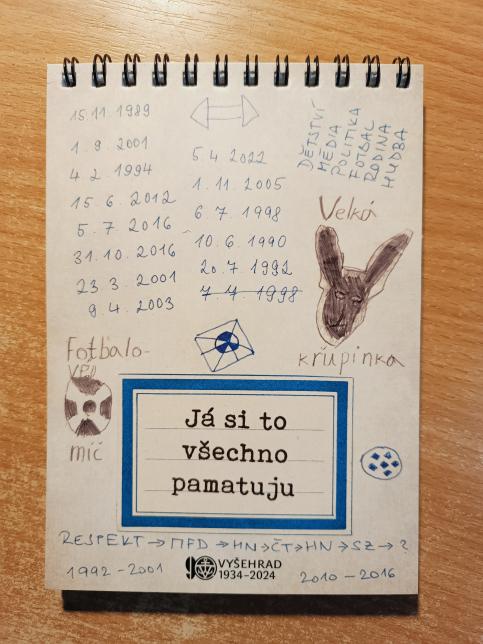 15. 11. 1989
1. 9. 2001
4. 2. 1994
15. 6. 2012
5. 7. 2016
31. 10. 2016
23. 3. 2001
9. 4. 2003
5. 4. 2022
1. 11. 2005
6. 7. 1998
10. 6. 1990
20. 7. 1992
7. 4. 1998
DĚTSTVÍ
MÉDIA
POLITIKA
FOTBAL
RODINA
HUDBA
Velká
křupinka
Fotbalo-
vý
míč
Já si to
všechno
pamatuju
RESPEKT → MFD → HN → ČT → HN → SZ → ?
1992 - 2001
90 VYŠEHRAD
1934-2024
2010 - 2016